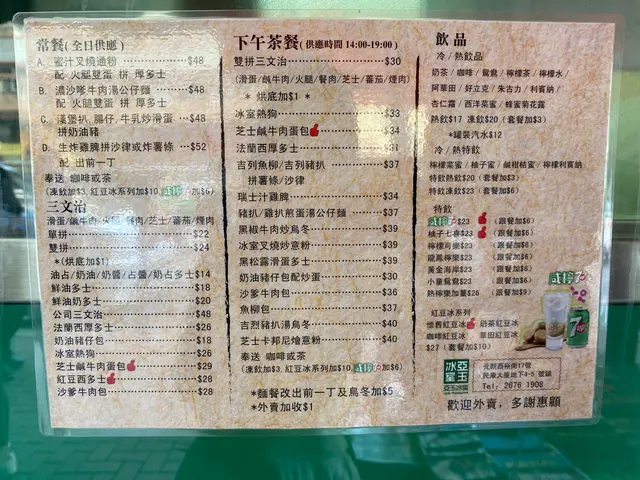 常餐(全日供應)
A. 蜜汁叉燒通粉 $48
配 火腿雙蛋 拼 厚多士
B. 濃沙嗲牛肉湯公仔麵 $48
配 火腿雙蛋 拼 厚多士
C. 漢堡扒,腸仔,牛乳炒滑蛋 $48
拼奶油豬
D. 生炸雞脾拼沙律或炸薯條 $52
配 出前一丁
奉送 咖啡或茶
(凍飲加$3,紅豆冰系列加$10,咸檸7加$6)
三文治
滑蛋/鹹牛肉/火腿/餐肉/芝士/蕃茄/煙肉
單拼 $22
雙拼 $24
*(烘底加$1)
油占/奶油/奶醬/占醬/奶占多士 $14
鮮油多士 $18
鮮油奶多士 $20
公司三文治 $48
法蘭西厚多士 $26
奶油豬仔包 $18
冰室熱狗 $26
芝士鹹牛肉蛋包 $29
紅豆西多士 $28
沙爹牛肉包 $28
下午茶餐(供應時間 14:00-19:00)
雙拼三文治 $30
(滑蛋/鹹牛肉/火腿/餐肉/芝士/蕃茄/煙肉)
* 烘底加$1 *
冰室熱狗 $33
芝士鹹牛肉蛋包 $34
法蘭西厚多士 $31
吉列魚柳/吉列豬扒 $37
拼薯條/沙律
瑞士汁雞脾 $34
豬扒/雞扒煎蛋湯公仔麵 $37
黑椒牛肉炒烏冬 $39
冰室叉燒炒意粉 $39
黑松露滑蛋多士 $39
奶油豬仔包配炒蛋 $30
沙爹牛肉包 $36
魚柳包 $37
吉烈豬扒湯烏冬 $40
芝士卡邦尼燴意粉 $40
奉送 咖啡或茶
(凍飲加$3,紅豆冰系列加$10,咸檸7加$6)
*麵餐改出前一丁及烏冬加$5
*外賣加收$1
飲品
冷/熱飲品
奶茶/咖啡/鴛鴦/檸檬茶/檸檬水/
阿華田/好立克/朱古力/利賓納/
杏仁霜/西洋菜蜜/蜂蜜菊花露
熱飲$17 凍飲$20 (套餐加$3)
*罐裝汽水$12
冷/熱特飲
檸檬菜蜜/柚子蜜/鹹柑桔蜜/檸檬利賓納
特飲熱飲$20 (套餐加$3)
特飲凍飲$23 (套餐加$6)
特飲
咸檸7 $23 (跟餐加$6)
柚子七喜$23 (跟餐加$6)
檸檬哥樂$23 (跟餐加$6)
龍鳳檸樂$23 (跟餐加$6)
黃金海岸$23 (跟餐加$6)
小童鴛鴦$23 (跟餐加$6)
熱檸樂加薑$26 (跟餐加$9)
咸檸7
紅豆冰系列
懷舊紅豆冰 奶茶紅豆冰
咖啡紅豆冰 華田紅豆冰
$27 (套餐加$10)
7up
亞玉冰室
元朗西裕街17號
民康大廈地下4-5 號舖
Tel: 2676 1908
歡迎外賣, 多謝惠顧